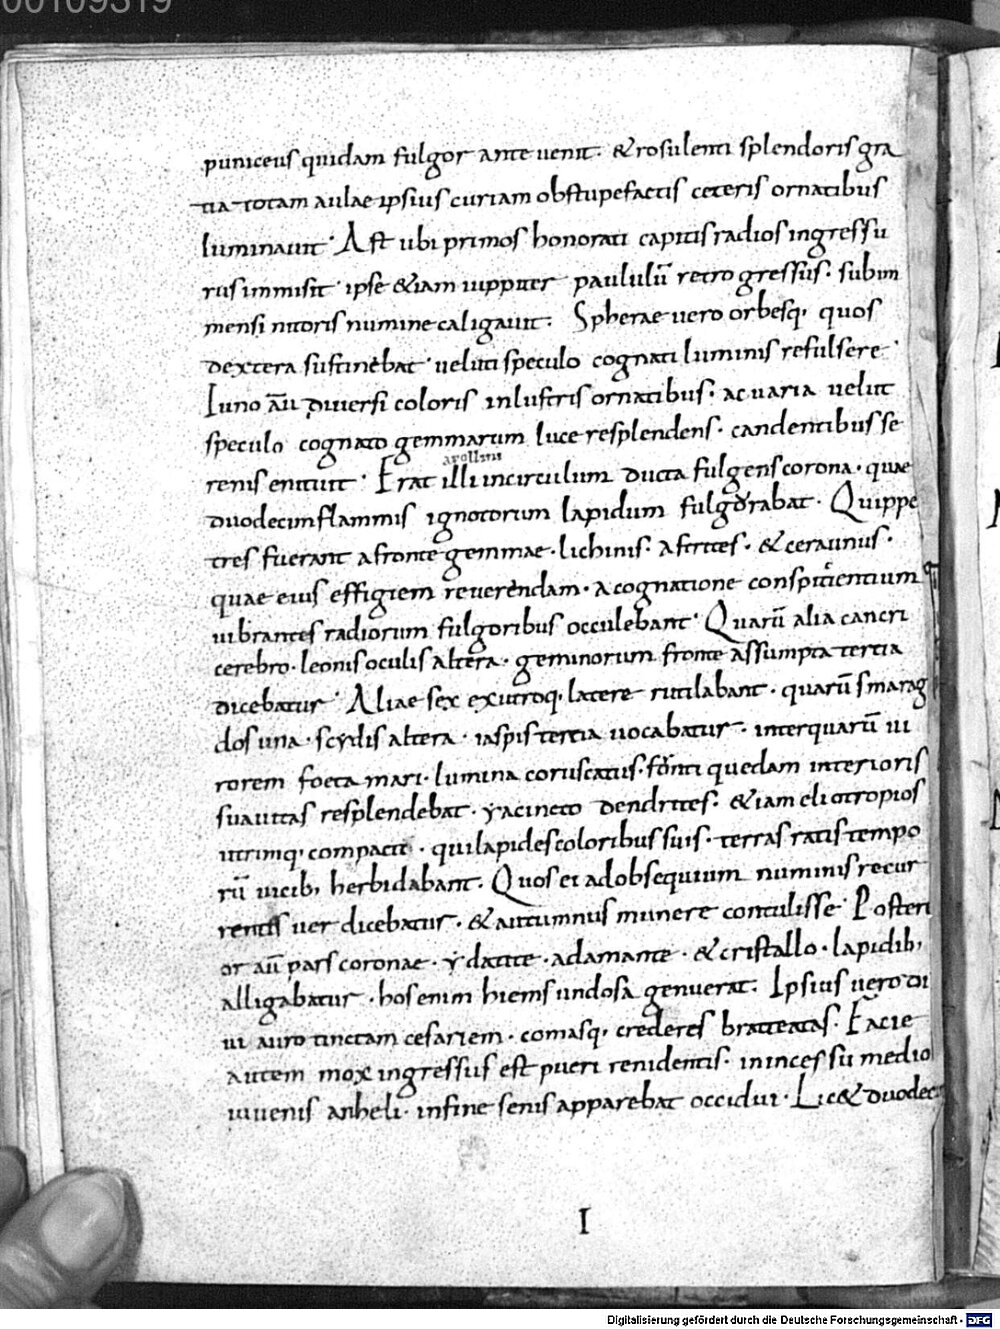 00109319
puniceus quidam fulgor ante uenit· & rosulenti splendoris gra
tia totam aulae ipsius curiam obstupefactis ceteris ornatibus
luminauit· Ast ubi primos honorati capitis radios ingressu
rus immisit· ipse &iam iuppiter paululū retro gressus· sub im
mensi nitoris numine caligauit· Spherae uero orbesq; quos
dextera sustinebat· ueluti speculo cognati luminis refulsere·
Iuno aū diuersi coloris inlustris ornatibus· ac uaria uelut
speculo cognato gemmarum luce resplendens· candentibus se
renis enituit· Erat illi in circulum ducta fulgens corona· quae
duodecim flammis ignotorum lapidum fulgorabat· Quippe
tres fuerant a fronte gemmae· lichinis· astrites· & ceraunus·
quae eius effigiem reuerendam· a cognatione conspicientium
uibrantes radiorum fulgoribus occulebant· Quarū alia cancri
cerebro· leonis oculis altera· geminorum fronte assumpta tertia
dicebatur· Aliae sex ex utroq; latere rutilabant· quarū smarag
dos una· scythis altera· iaspis tertia uocabatur· inter quarū ui
rorem foeta mari· lumina coruscatus· fonti quedam interioris
suauitas resplendebat· yacincto dendrites· &iam eliotropios
utrimq; compacti· qui lapides coloribus suis· terras ratis tempo
rū uicib; herbidabant· Quos ei ad obsequium numinis recur
rentes uer dicebatur· & autumnus munere contulisse· Posteri
or aū pars coronae· ydatite· adamante· & cristallo· lapidib;
alligabatur· hos enim hiems undosa genuerat· Ipsius uero di
ui auro tinctam cesariem· comasq; crederes bratteatas· Facie
autem mox ingressus est pueri renidentis· in incessu medio
iuuenis anheli· in fine senis apparebat occidui· Lic& duodeci
I
Digitalisierung gefördert durch die Deutsche Forschungsgemeinschaft - DFG